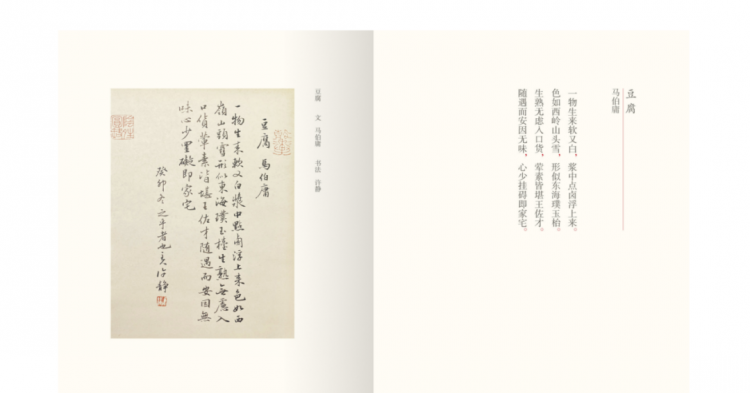 豆腐 馬伯庸
一物生來軟又白漿中點鹵浮上來色如西
嶺山頭雪形似東海璞玉檯生熟無慮入
口貨葷素皆堪王佐才隨遇而安因無
味心少罣礙即家宅
癸卯冬之乎者也矣許靜
豆腐 文 马伯庸 书法 许静
豆腐
马伯庸
一物生来软又白，浆中点卤浮上来。
色如西岭山头雪，形似东海璞玉枱。
生熟无虑入口货，荤素皆堪王佐才。
随遇而安因无味，心少挂碍即家宅。